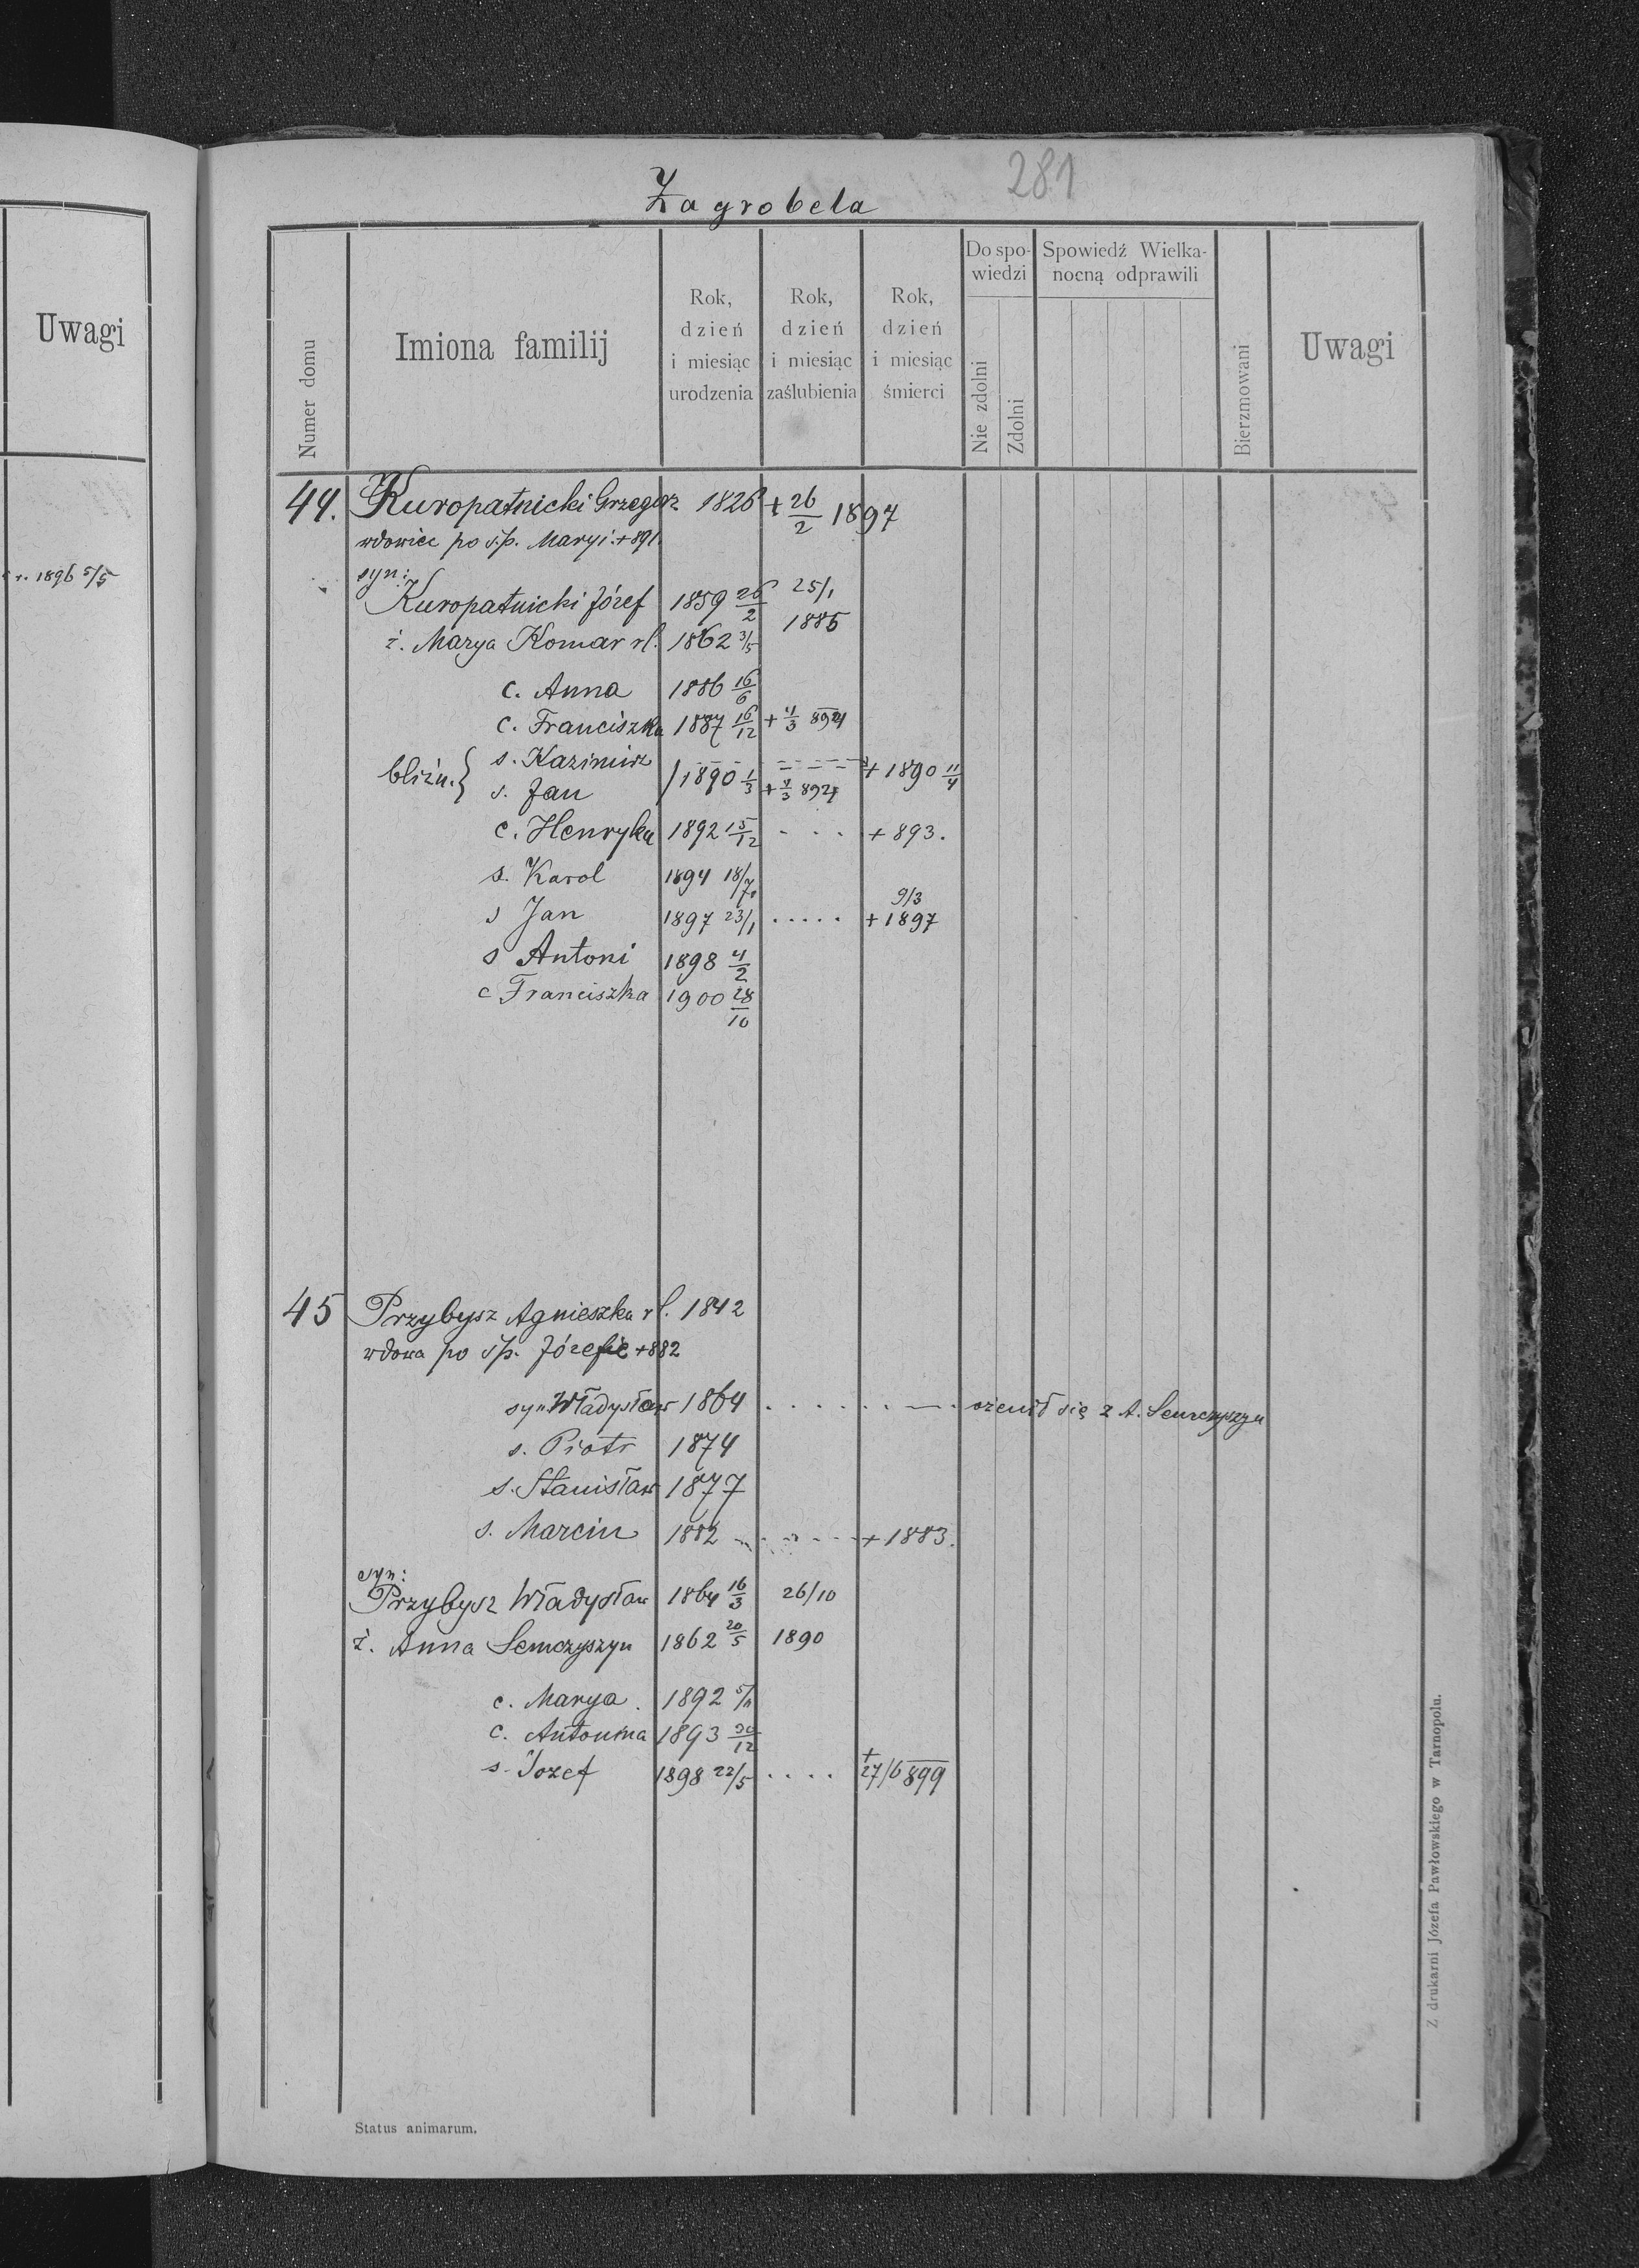 Uwagi
1896 5/5
281
Zagrobela
Numer domu
Imiona familij
Rok, dzień i miesiąc urodzenia
Rok, dzień i miesiąc zaślubienia
Rok, dzień i miesiąc śmierci
Do spowiedzi
Nie zdolni
Zdolni
Spowiedź Wielkanocną odprawili
Bierzmowani
Uwagi
44. Kuropatnicki Grzegorz 1826 + 26/2 1897
wdowiec po ś.p. Maryi + 891.
syn:
Kuropatnicki Józef 1859 26/2 25/1
ż. Marya Komar rł. 1862 3/5 1885
c. Anna 1886 16/6
c. Franciszka 1887 16/12 + 4/3 894
bliźn. { s. Kazimirz + 1890 11/4
s. Jan 1890 1/3 + 4/3 894
c. Henryka 1892 15/12 . . . + 893.
s. Karol 1894 18/7
s Jan 1897 23/1 . . . . . + 9/3 1897
s Antoni 1898 4/2
c Franciszka 1900 28/10
45 Przybysz Agnieszka rł. 1842
wdowa po ś.p. Józefie + 882
syn Władysław 1864 . . . . . . . ożenił się z A. Semczyszyn
s. Piotr 1874
s. Stanisław 1877
s. Marcin 1882 - - - - - + 1883.
syn:
Przybysz Władysław 1864 16/3 26/10
ż. Anna Semczyszyn 1862 20/5 1890
c. Marya. 1892 5/11
c. Antonina 1893 30/12
s. Jozef 1898 22/5 . . . . + 27/6 899
Status animarum.
Z drukarni Józefa Pawłowskiego w Tarnopolu.